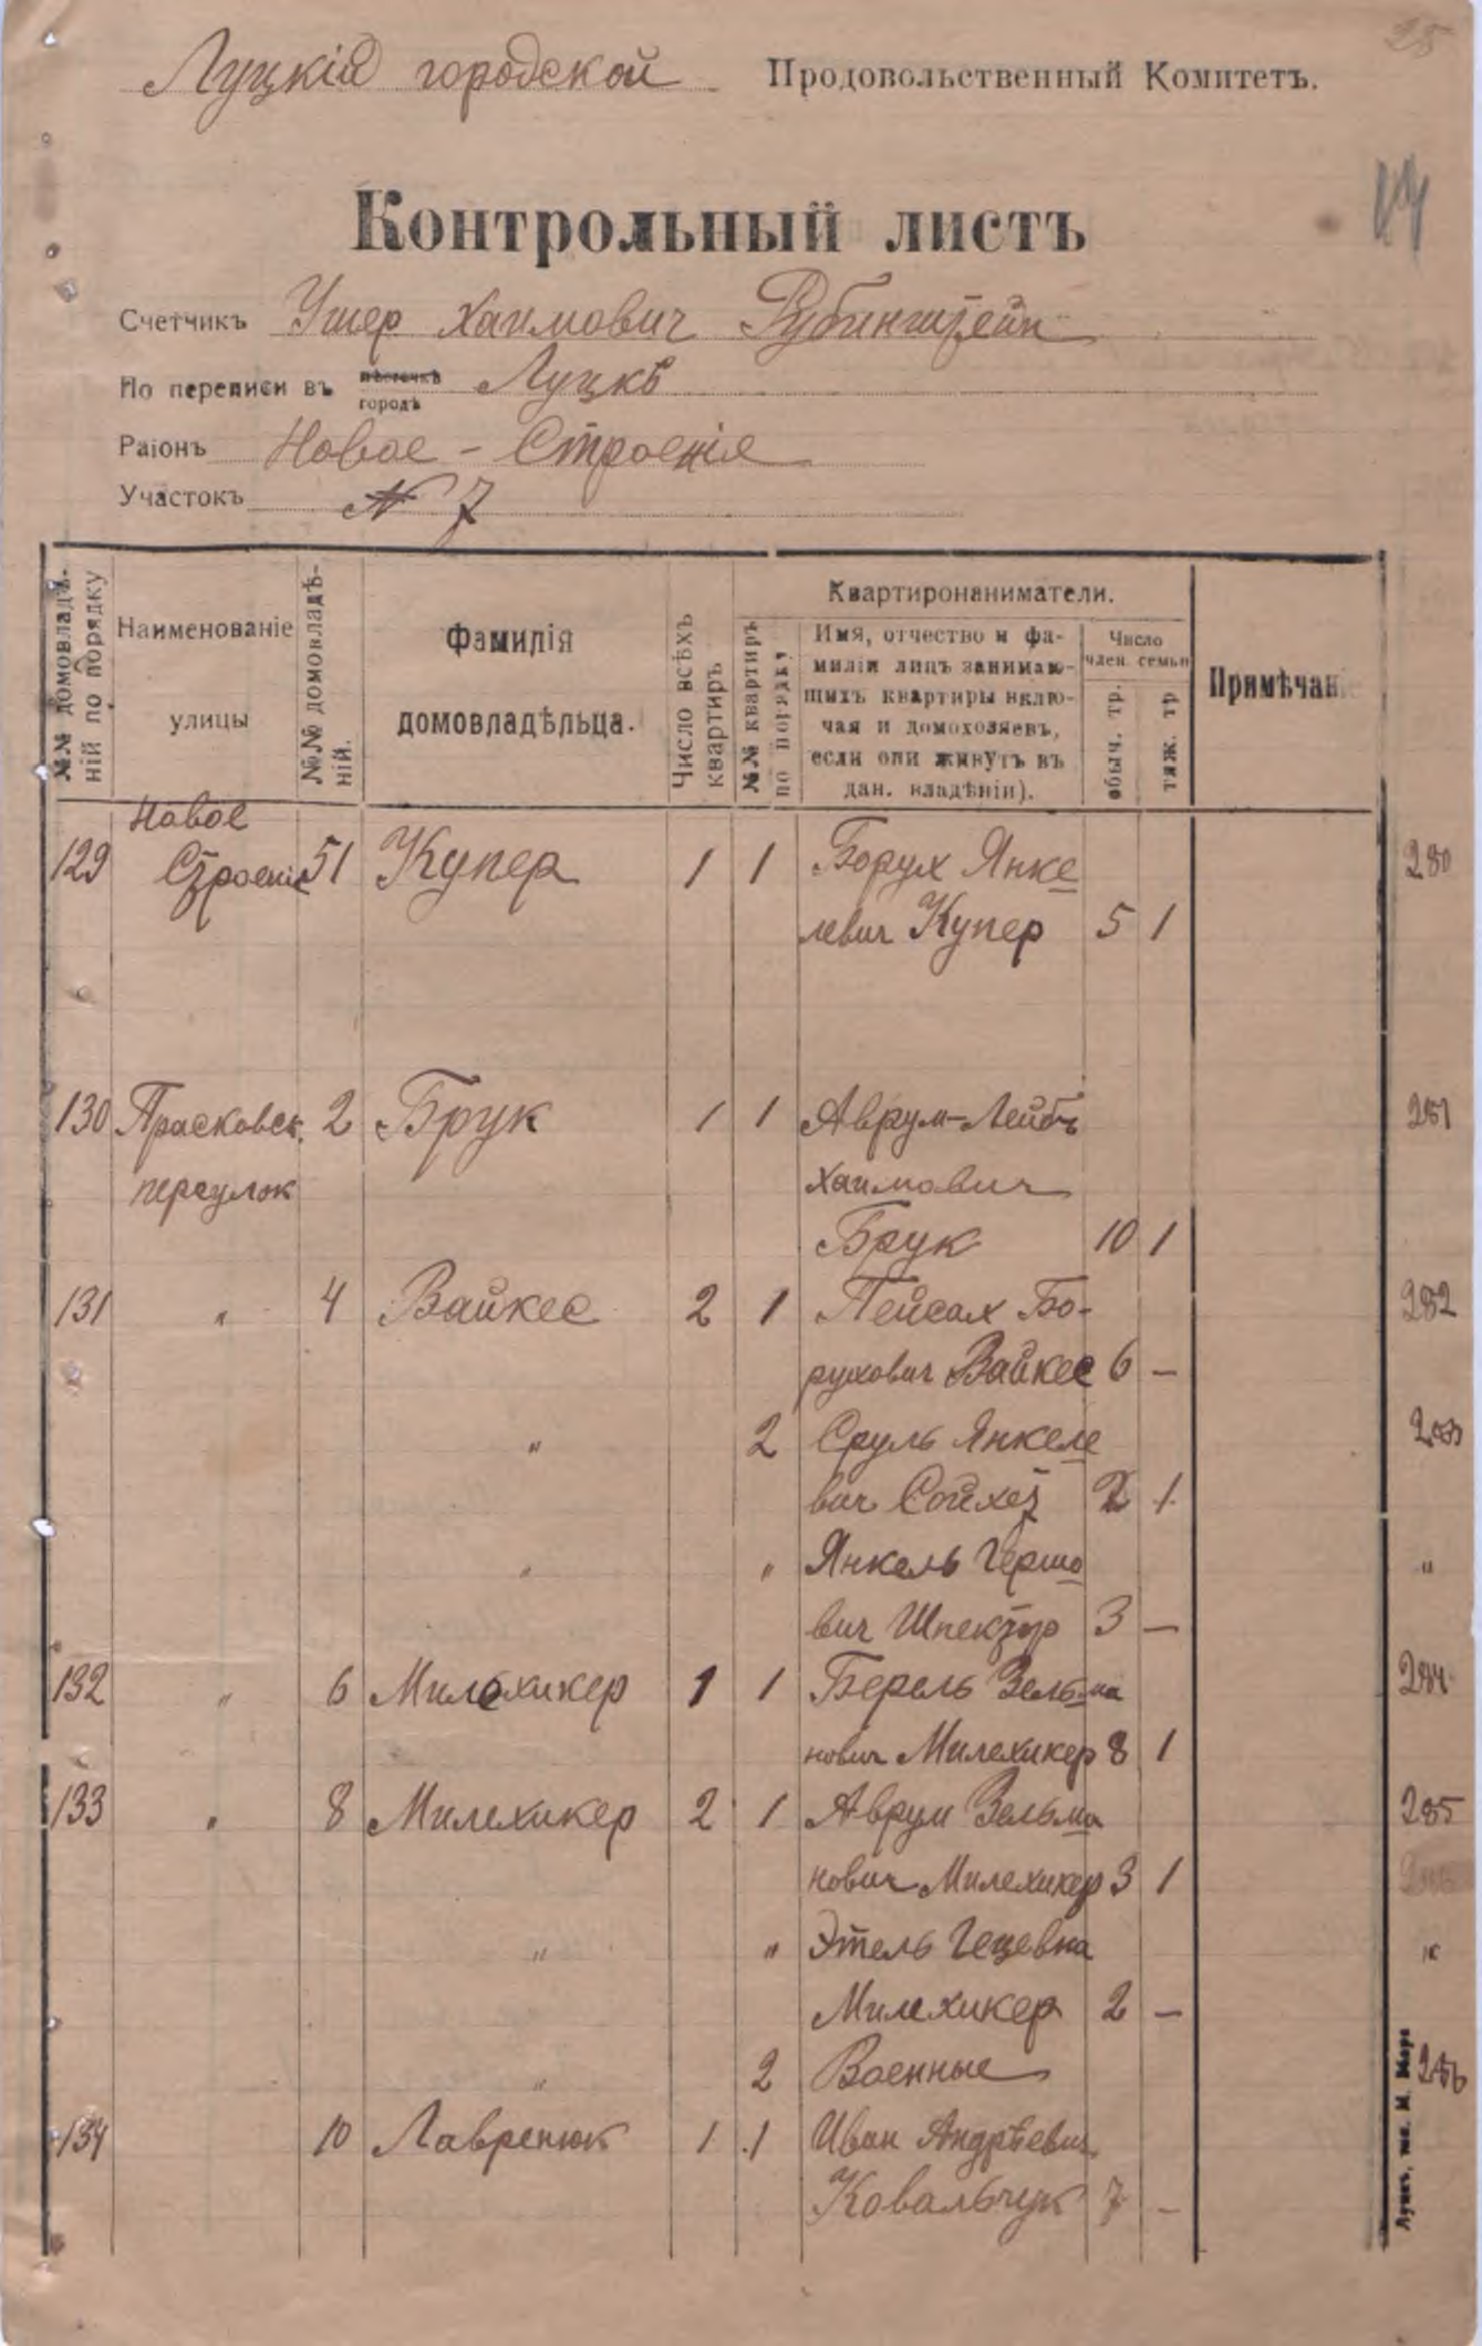 25
Луцкій городской Продовольственный Комитетъ.
14
Контрольный листъ
Счетчикъ Ушер Хаимович Рубинштейн
По переписи въ мѣстечкѣ городѣ Луцкѣ
Раіонъ Новое - Строенія
Участокъ № 7
№№ домовладѣ-
ній по порядку
Наименованіе
улицы
№№ домовладѣ-
ній.
Фамилія
домовладѣльца.
Число всѣхъ
квартиръ
№№ квартиръ
по порядку
Квартиронаниматели.
Имя, отчество и фа-
милія лицъ занимаю-
щихъ квартиры вклю-
чая и домохозяевъ,
если они живутъ въ
дан. владѣніи).
Число
член. семьи
обыч. тр.
тяж. тр.
Примѣчані
Новое
129 Строеніе 51 Купер 1 1 Борух Янке 280
левич Купер 5 1
130 Прасковск. 2 Брук 1 1 Аврум-Лейбъ 281
переулок Хаимович
Брук 10 1
131 " 4 Вайкес 2 1 Пейсах Бо- 282
рухович Вайкес 6 —
" 2 Сруль Янкеле 283
вич Сойхет 2 1
" " Янкель Гершо "
вич Шпектор 3 —
132 " 6 Милехикер 1 1 Берель Зельма 284
нович Милехикер 8 1
133 " 8 Милехикер 2 1 Аврум Зельма 285
нович Милехикер 3 1
" " Этель Гецевна "
Милехикер 2 —
" 2 Военные 286
134 10 Лавренюк 1 1 Иван Андрѣевич
Ковальчук 7 —